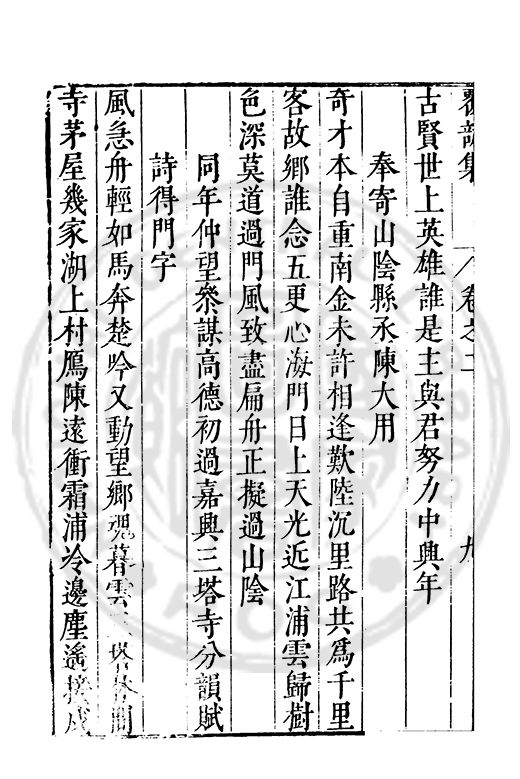 集 卷之二 九
古賢世上英雄誰是主與君努力中興年
奉寄山陰縣丞陳大用
奇才本自重南金未許相逢歎陸沉里路共爲千里
客故鄉誰念五更心海門日上天光近江浦雲歸樹
色深莫道過門風致盡扁舟正擬過山陰
同年仲望叅謀高德初過嘉興三塔寺分韻賦
詩得門字
風急舟輕如馬奔楚吟又動望鄉魂暮雲三塔
寺茅屋幾家湖上村鴈陳遠衝霜浦冷邊塵遙接